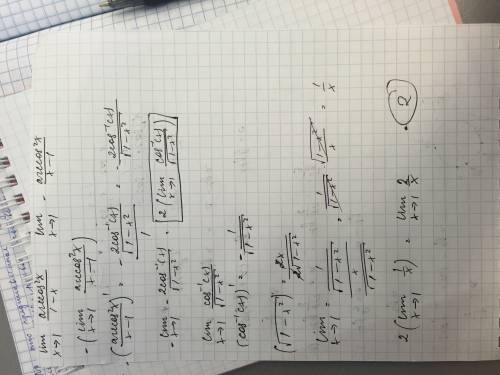 lim x→1 arccos²x / 1-x   lim x→1 - arccos²x / x-1
-(lim x→1 arccos²x / x-1)
-(arccos²x / x-1)' = - 2cos⁻¹(x) / √1-x² = - 2cos⁻¹(x) / √1-x²
-lim x→1 - 2cos⁻¹(x) / √1-x² · 2(lim x→1 cos⁻¹(x) / √1-x²)
lim x→1 cos⁻¹(x) / √1-x²
(cos⁻¹(x))' = - 1 / √1-x²
(√1-x²)' = 2x / 2√1-x²
lim x→1 = 1 / √1-x² / x / √1-x² = 1 / √1-x² · √1-x² / x = 1 / x
2(lim x→1 1/x) = lim x→1 2/x · 2